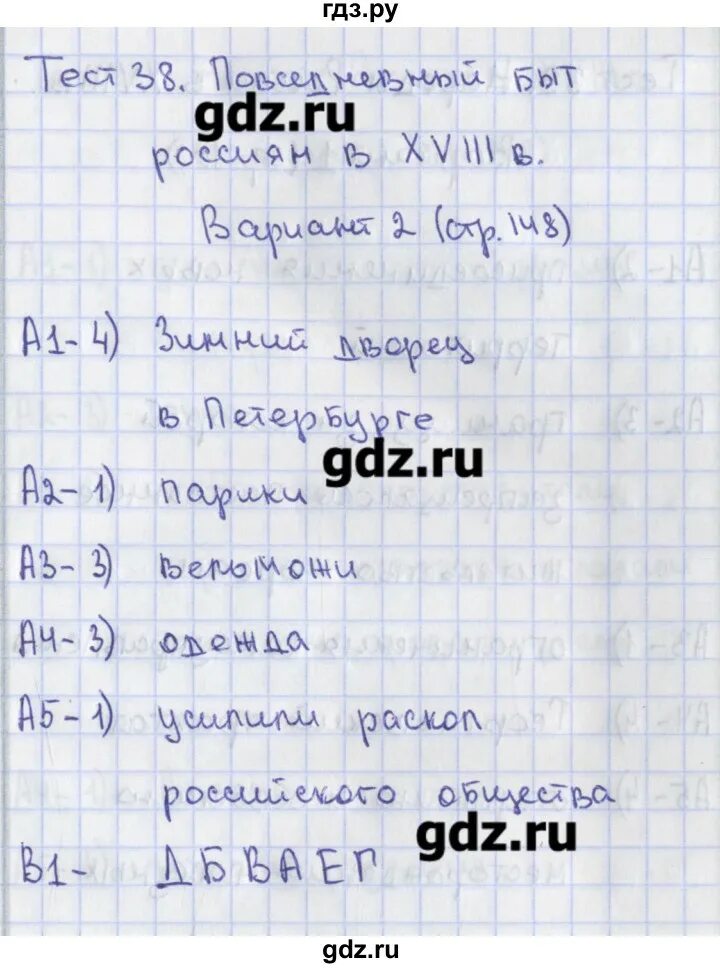 гдз.ру
Тест 38. Повседневный быт
gdz.ru
россиян в XVIII в.
Вариант 2 (стр. 148)
А1- 4) Зимний дворец
в Петербурге
gdz.ru
А2- 1) парики
А3- 3) вельможи
А4- 3) одежда
А5- 1) усилили раскол
российского общества
gdz.ru
В1- Д Б В А Е Г
gdz.ru